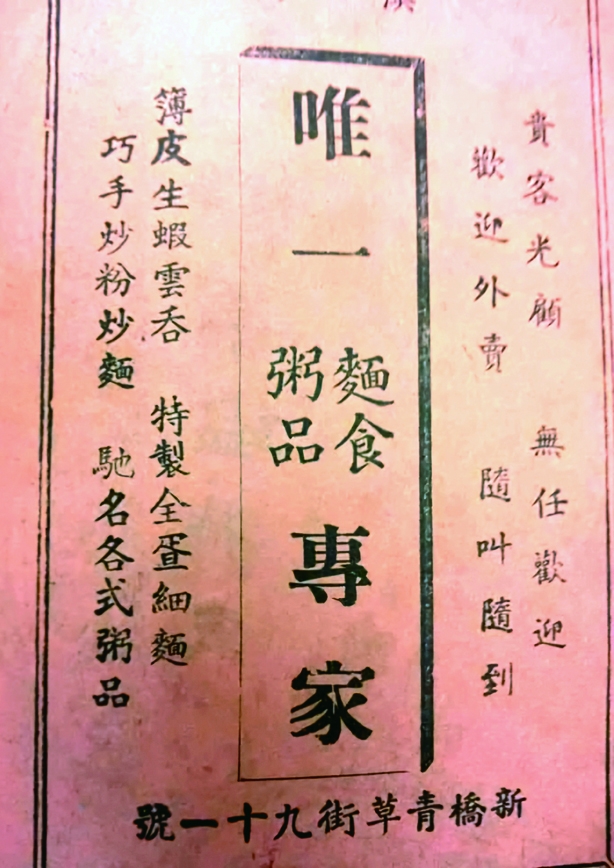 貴客光顧 無任歡迎
歡迎外賣 隨叫隨到
唯一
麵食
粥品
專家
簿皮生蝦雲吞 特製全疍細麵
巧手炒粉炒麵 馳名各式粥品
新橋青草街九十一號